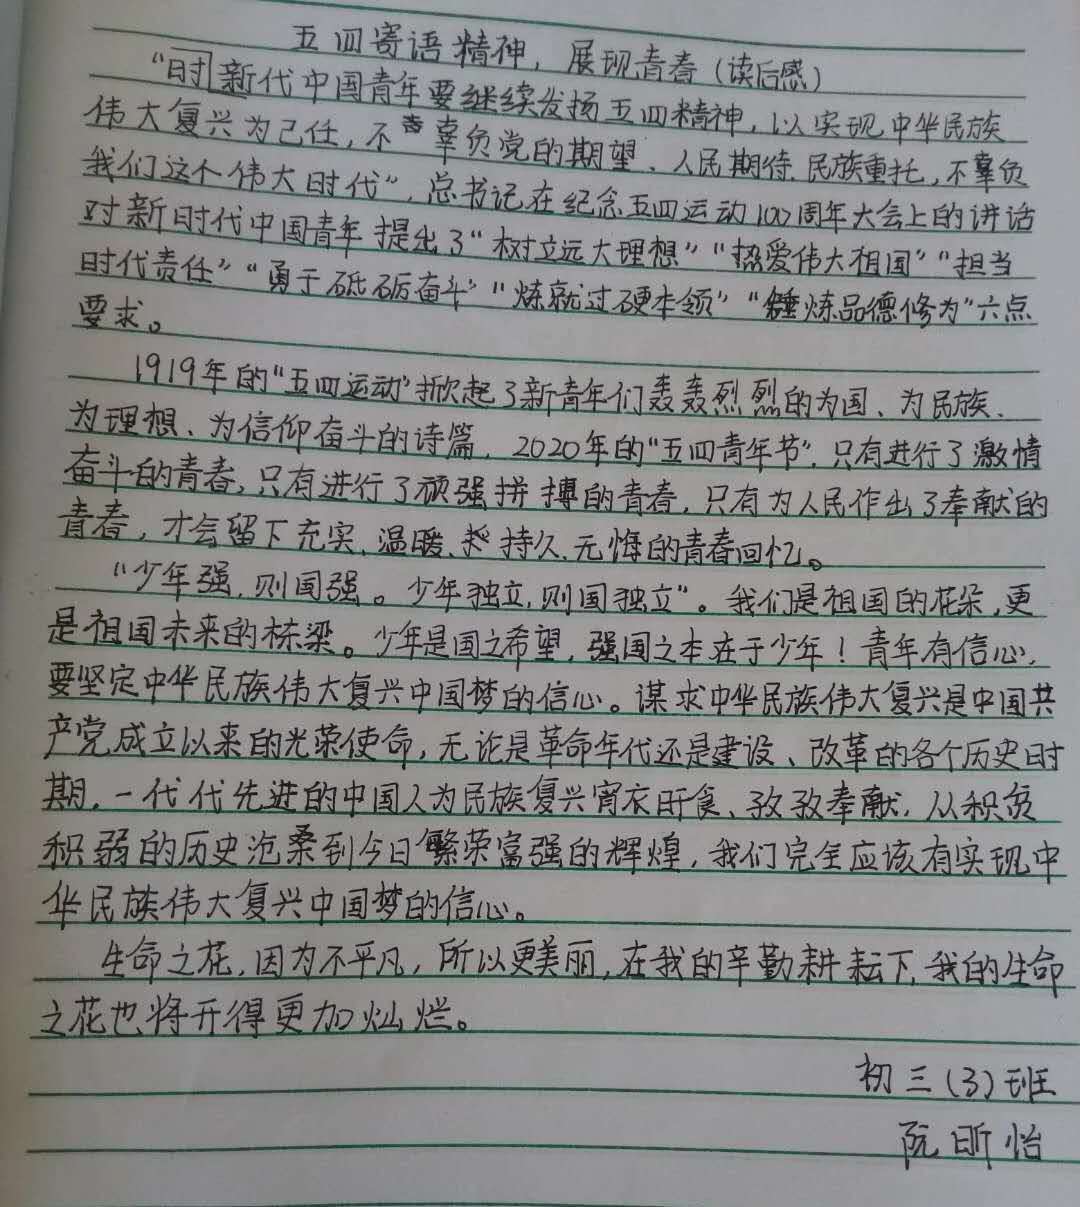 五四寄语精神，展现青春（读后感）
“时新代中国青年要继续发扬五四精神，以实现中华民族
伟大复兴为己任，不辜负党的期望、人民期待、民族重托，不辜负
我们这个伟大时代”，总书记在纪念五四运动100周年大会上的讲话
对新时代中国青年提出了“树立远大理想”“热爱伟大祖国”“担当
时代责任”“勇于砥砺奋斗”“炼就过硬本领”“锤炼品德修为”六点
要求。
1919年的“五四运动”掀起了新青年们轰轰烈烈的为国、为民族、
为理想、为信仰奋斗的诗篇，2020年的“五四青年节”，只有进行了激情
奋斗的青春，只有进行了顽强拼搏的青春，只有为人民作出了奉献的
青春，才会留下充实、温暖、持久、无悔的青春回忆。
“少年强，则国强。少年独立，则国独立”。我们是祖国的花朵，更
是祖国未来的栋梁。少年是国之希望，强国之本在于少年！青年有信心，
要坚定中华民族伟大复兴中国梦的信心。谋求中华民族伟大复兴是中国共
产党成立以来的光荣使命，无论是革命年代还是建设、改革的各个历史时
期，一代代先进的中国人为民族复兴宵衣旰食、孜孜奉献，从积贫
积弱的历史沧桑到今日繁荣富强的辉煌，我们完全应该有实现中
华民族伟大复兴中国梦的信心。
生命之花，因为不平凡，所以更美丽，在我的辛勤耕耘下，我的生命
之花也将开得更加灿烂。
初三（3）班
阮昕怡